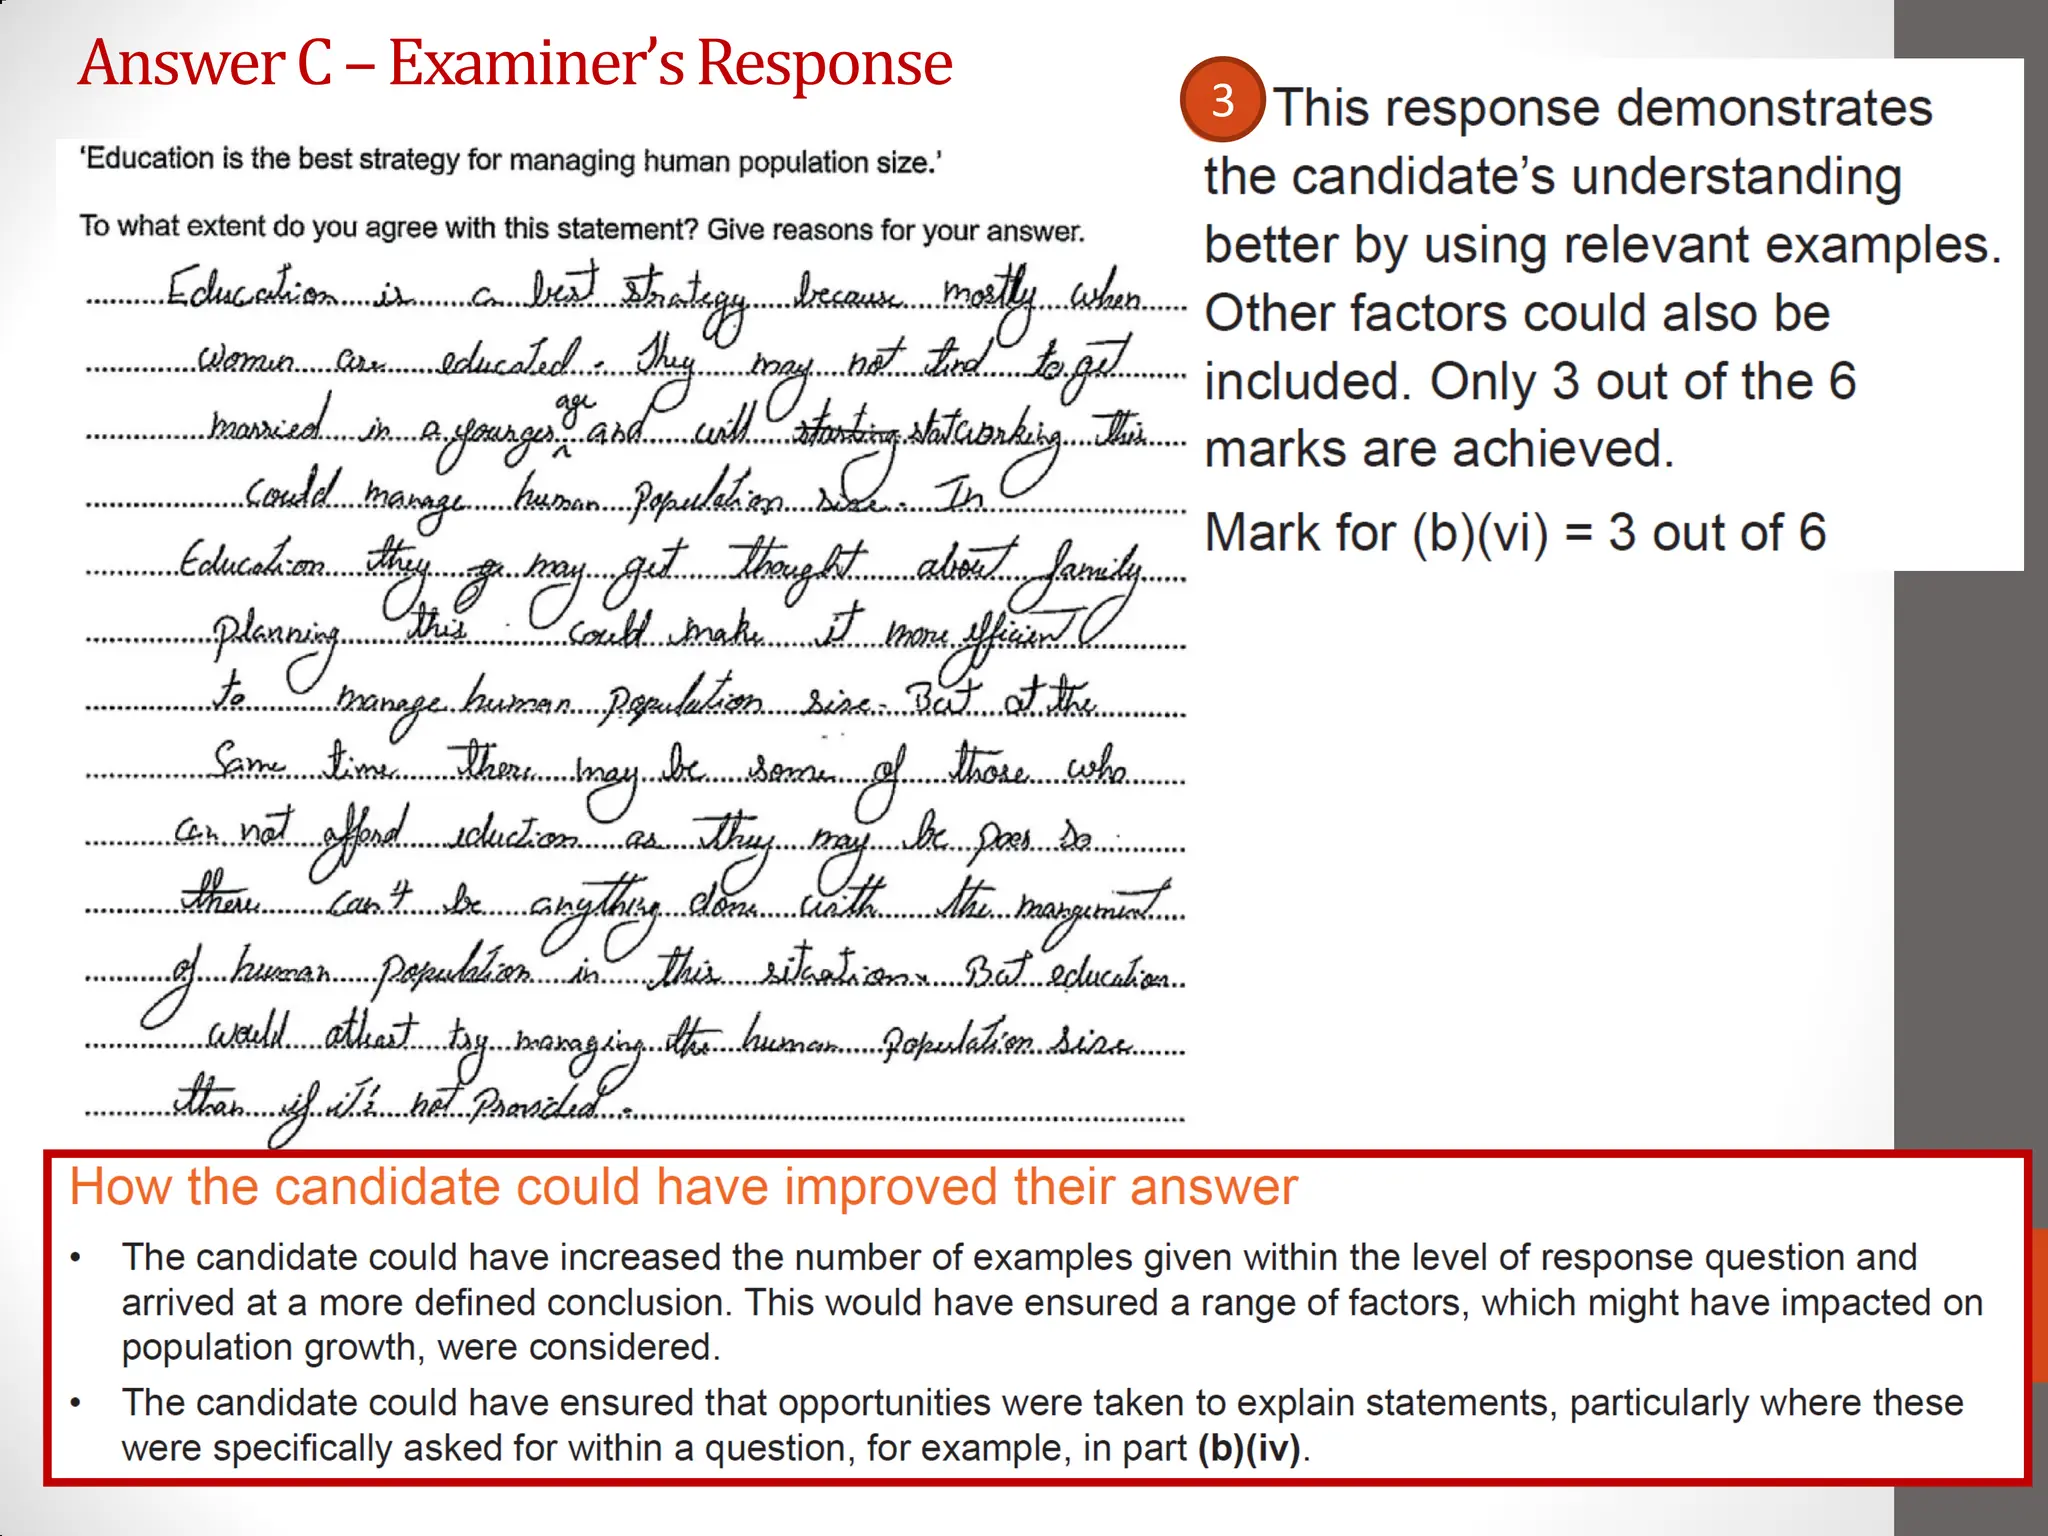 Answer C – Examiner's Response
'Education is the best strategy for managing human population size.'
To what extent do you agree with this statement? Give reasons for your answer.
Education is a best strategy because mostly when
women are educated. They may not tind to get
married in a younger age and will starting statworking this
could manage human population size. In
Education they go may get thought about family
planning this could make it more efficient
to manage human population size. But at the
Same time there may be some of those who
can not afford eduction as they may be poor so
there can't be anything done with the mangement
of human population in this sitation. But education
would atleast try managing the human population size
than if it's not Provided.
3
This response demonstrates
the candidate's understanding
better by using relevant examples.
Other factors could also be
included. Only 3 out of the 6
marks are achieved.
Mark for (b)(vi) = 3 out of 6
How the candidate could have improved their answer
• The candidate could have increased the number of examples given within the level of response question and
arrived at a more defined conclusion. This would have ensured a range of factors, which might have impacted on
population growth, were considered.
• The candidate could have ensured that opportunities were taken to explain statements, particularly where these
were specifically asked for within a question, for example, in part (b)(iv).